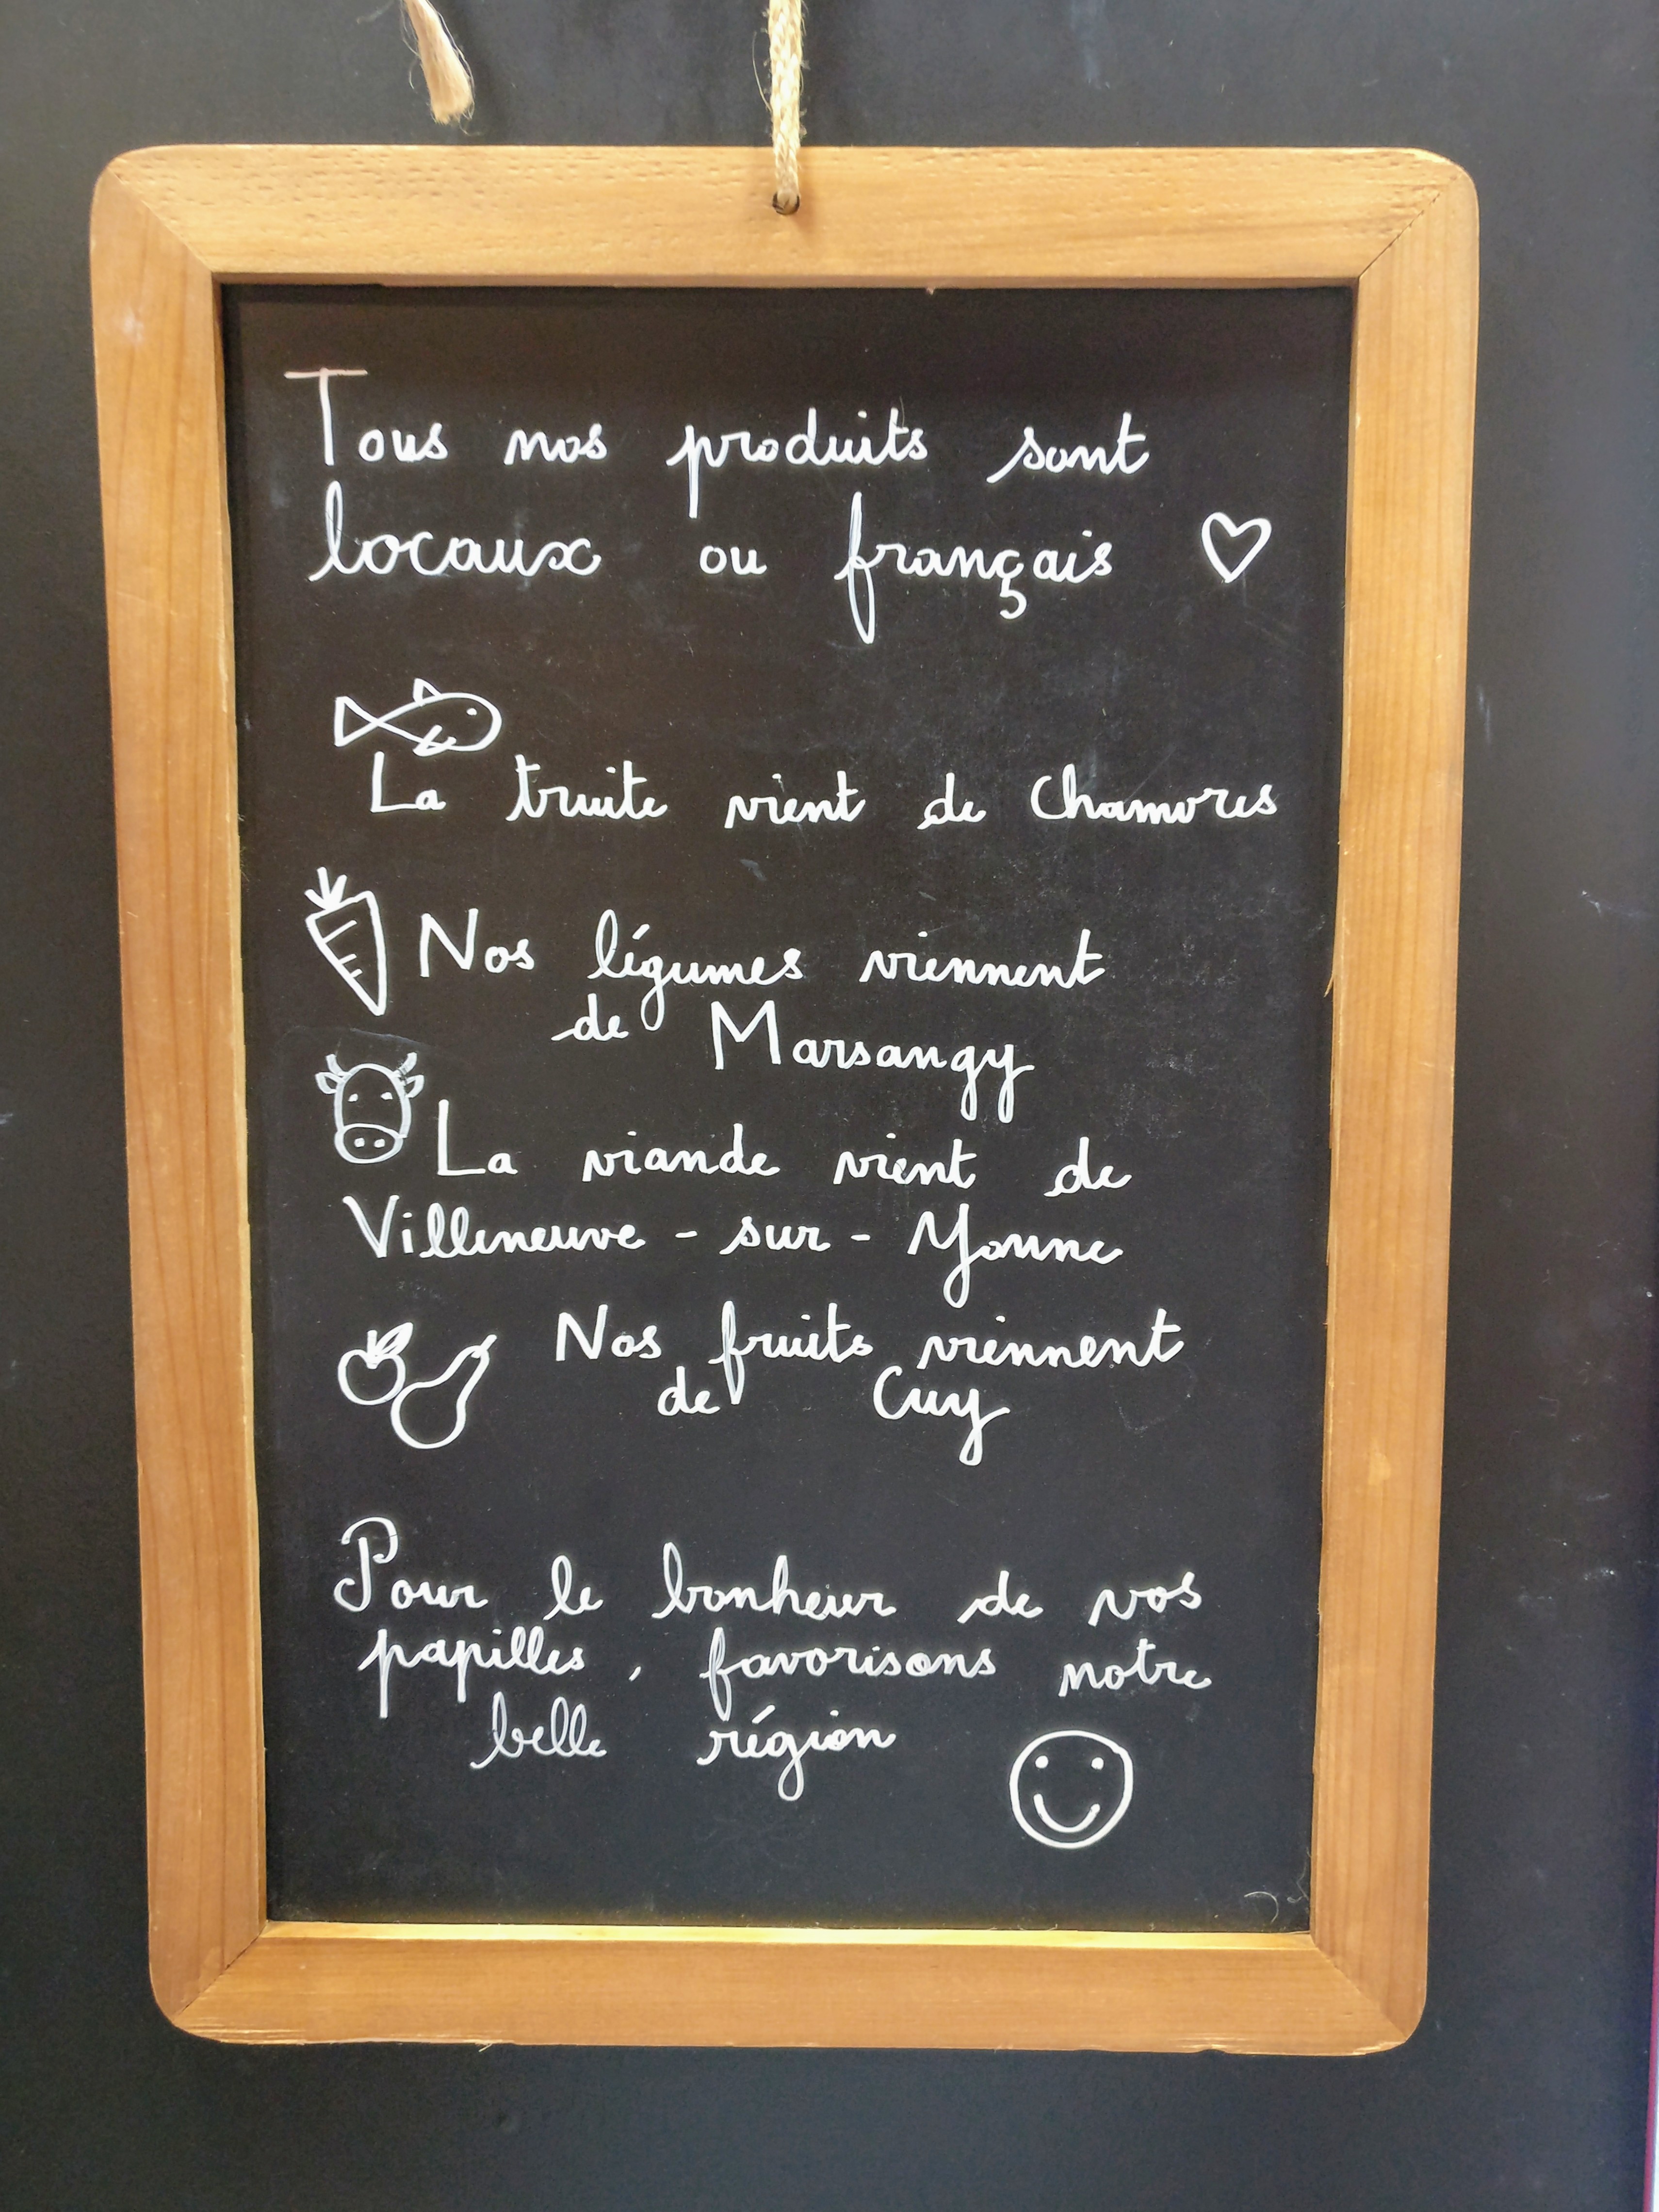 Tous nos produits sont
locaux ou français
La truite vient de Chamvres
Nos légumes viennent
de Marsangy
La viande vient de
Villeneuve - sur - Yonne
Nos fruits viennent
de Cuy
Pour le bonheur de vos
papilles, favorisons notre
belle région